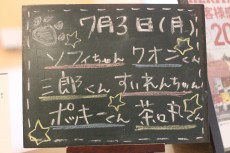 7月3日(月)
ソフィちゃん クオンくん
三郎くん すいれんちゃん
ポッキーくん 茶口丸くん
20